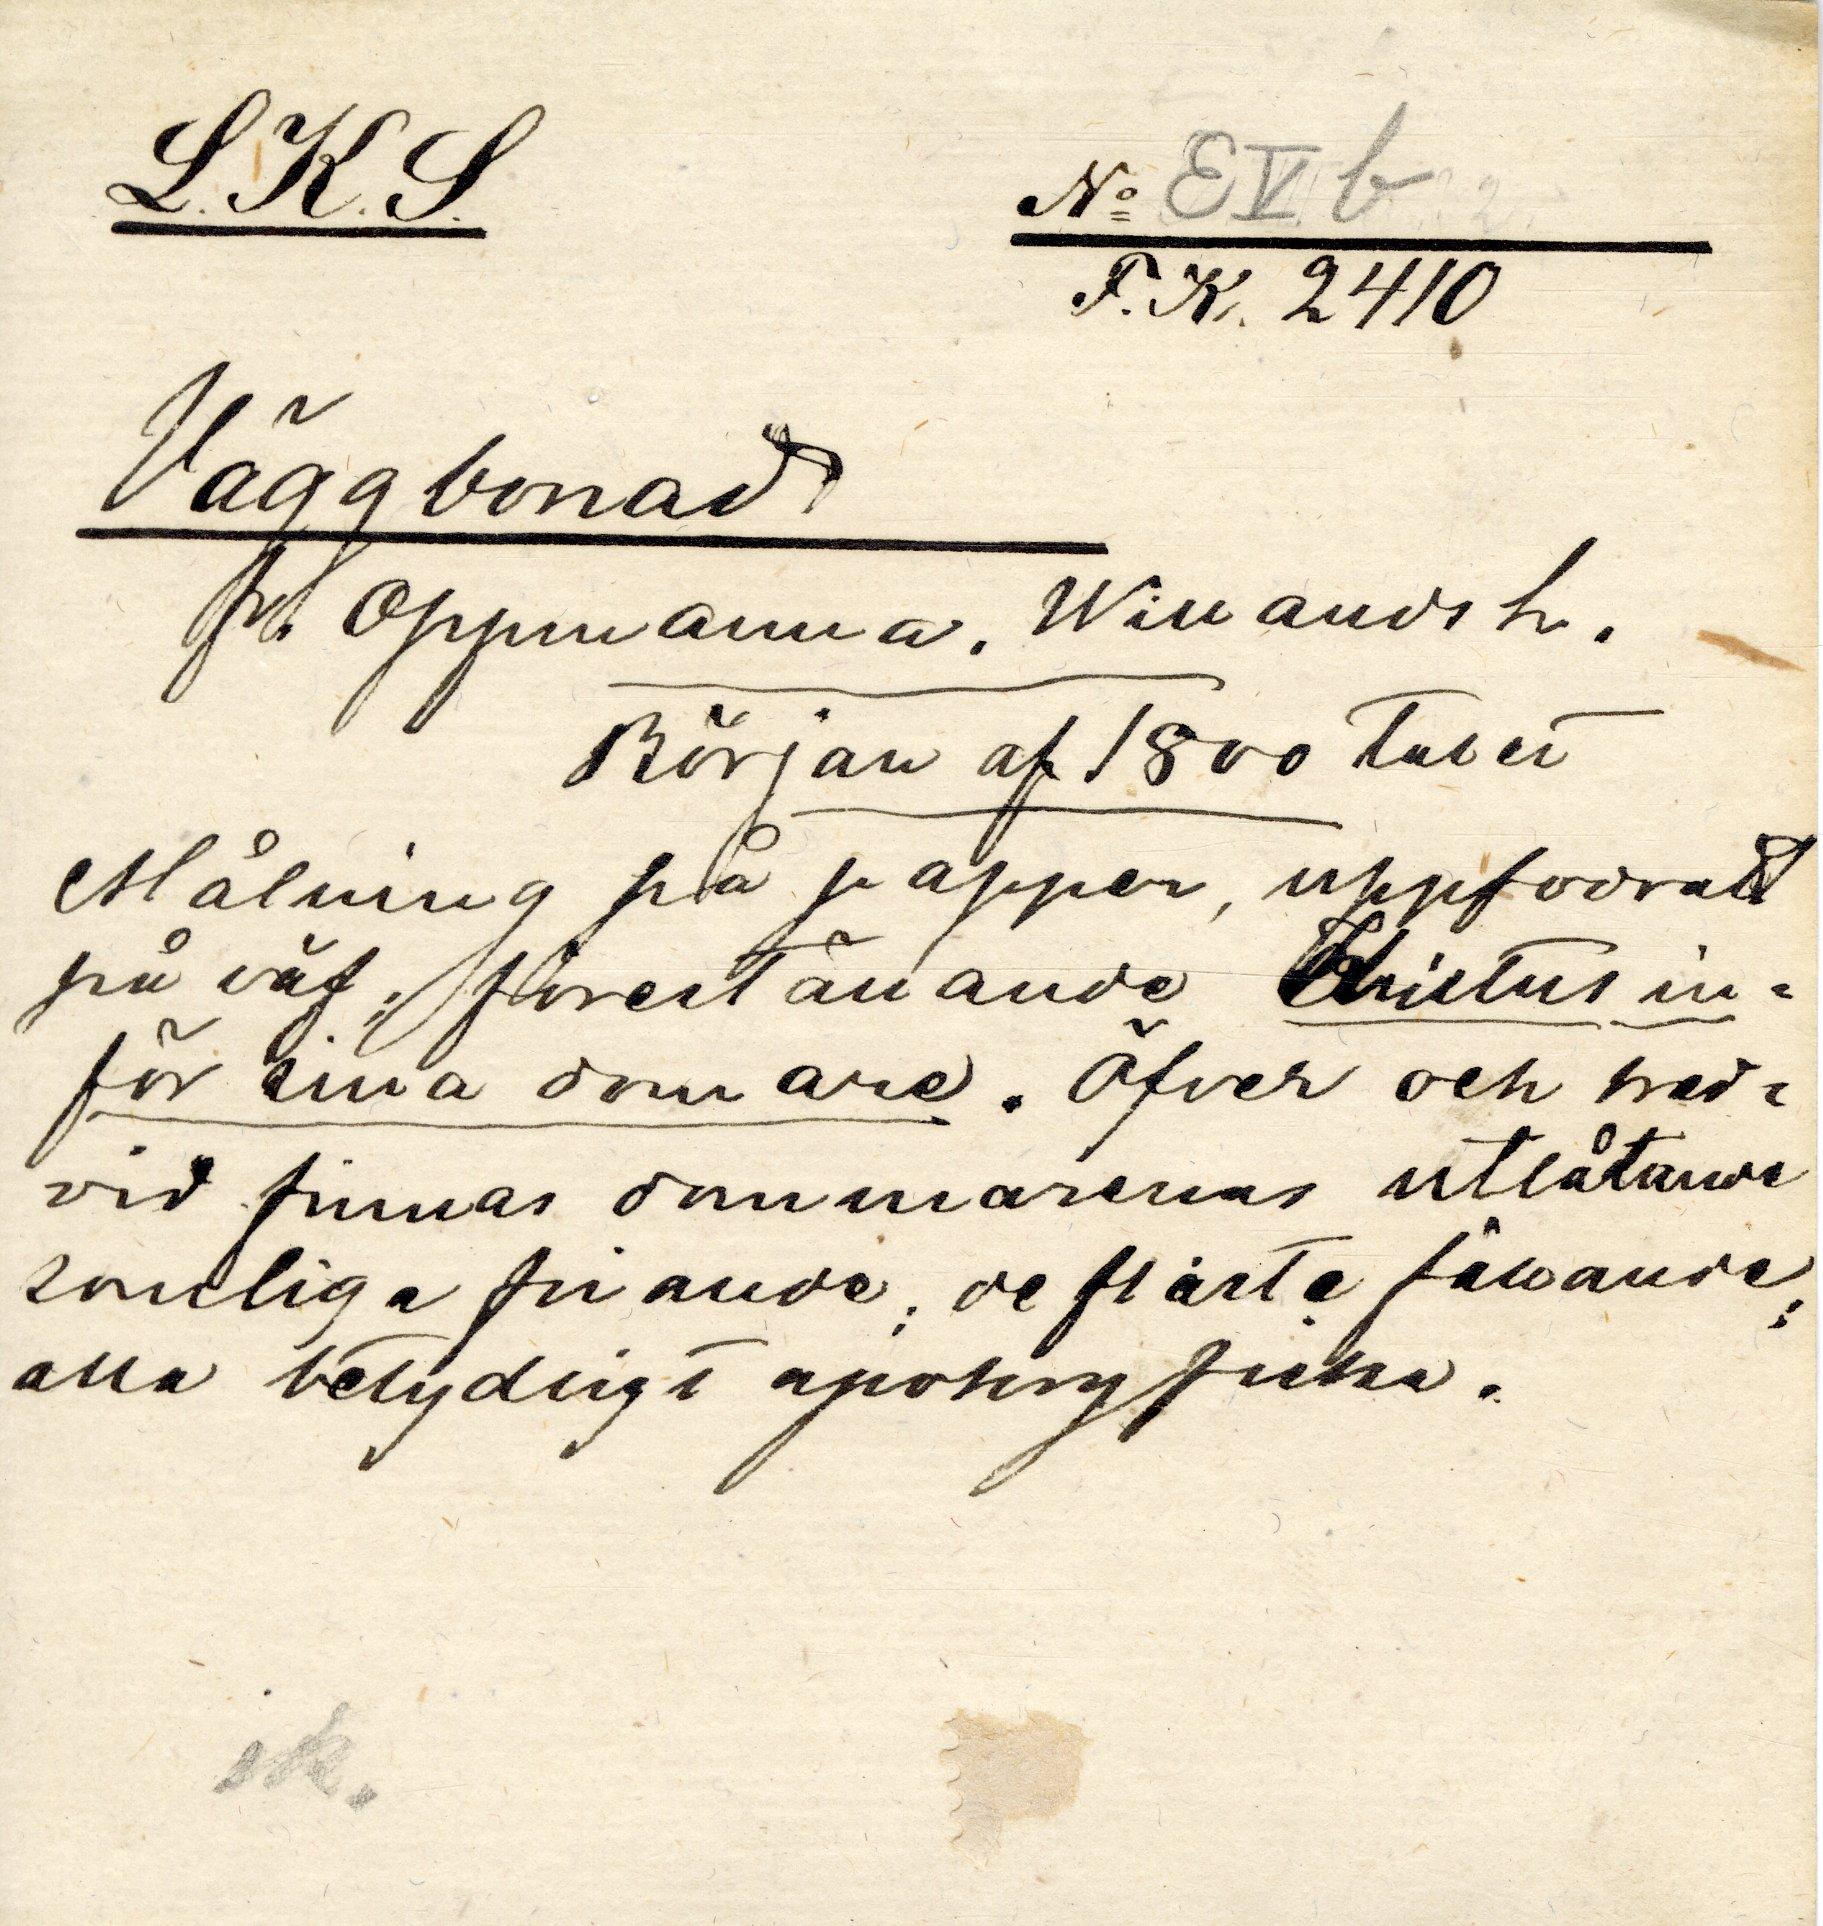 L.K.S.
No EVb
F.K. 2410
Väggbonad
fr. Oppmanna. Willandsh.
Början af 1800 talet
Målning på papper, uppfodrad
på väf; föreställande Christus in-
för sina domare. Öfver och bred-
vid finnas dommarenas utlåtande
somliga friande, de flästa fälande;
alla betydligt apokryfiska.
sk.